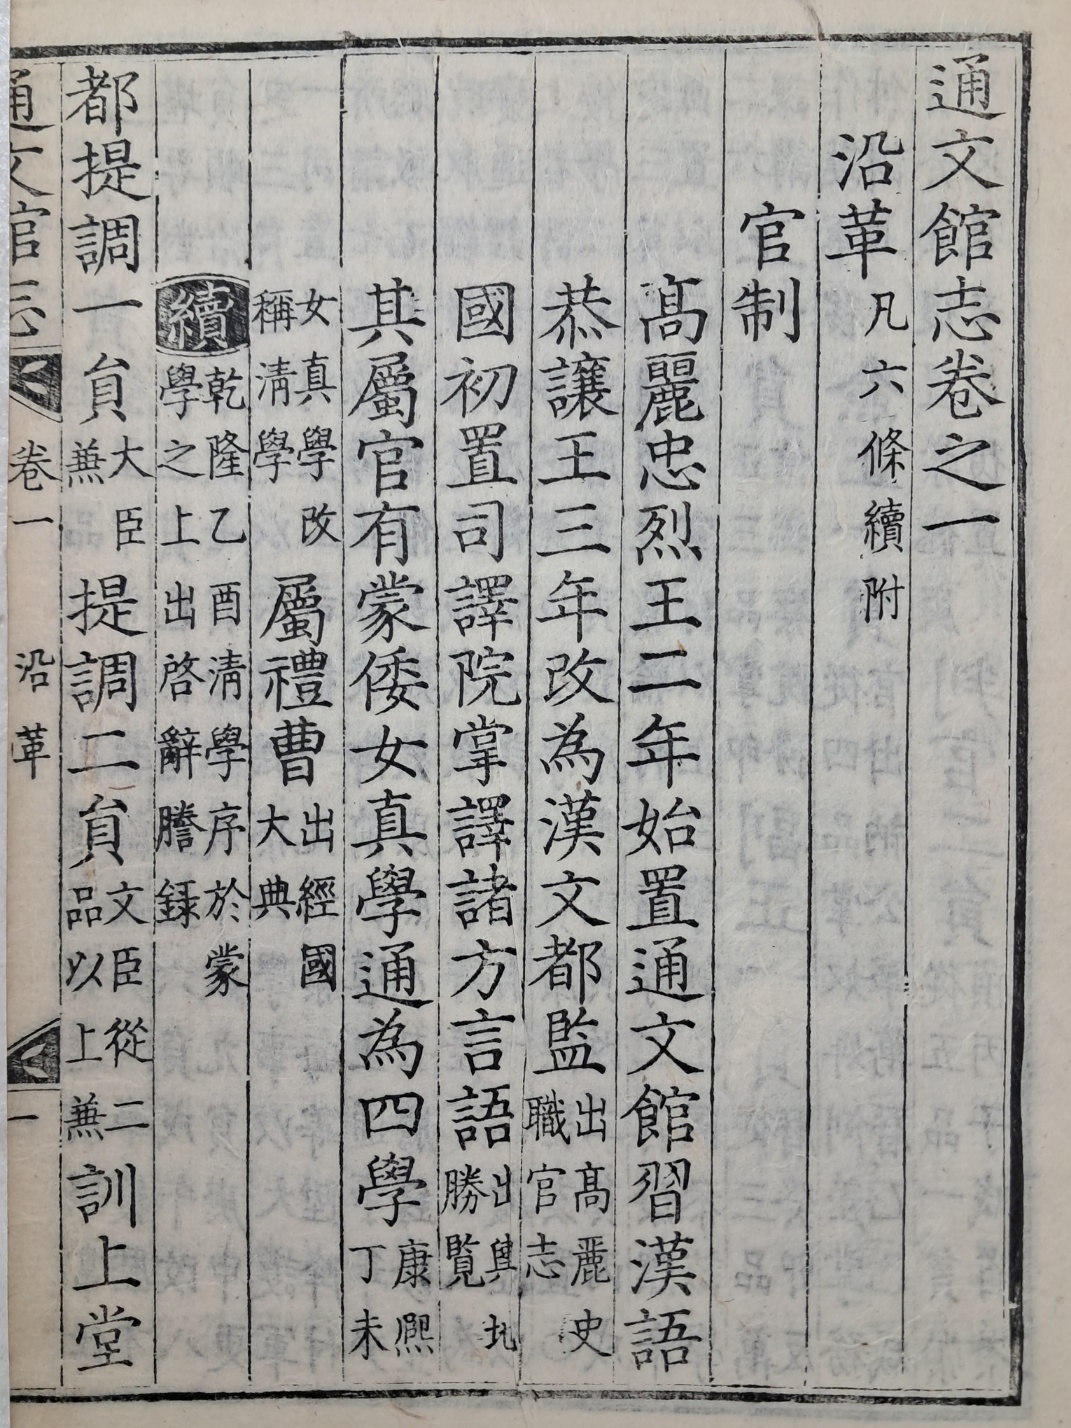 通文館志卷之一
沿革凡六條續附
官制
高麗忠烈王二年始置通文館習漢語
恭讓王三年改為漢文都監出高麗史職官志
國初置司譯院掌譯諸方言語出輿地勝覧
其屬官有蒙倭女真學通為四學康熙丁未
女真學改稱淸學屬禮曹出經國大典
續乾隆乙酉淸學序於蒙學之上出啓辭謄錄
都提調一負大臣兼提調二負文臣從二品以上兼訓上堂
通文館志
卷一
沿革
一